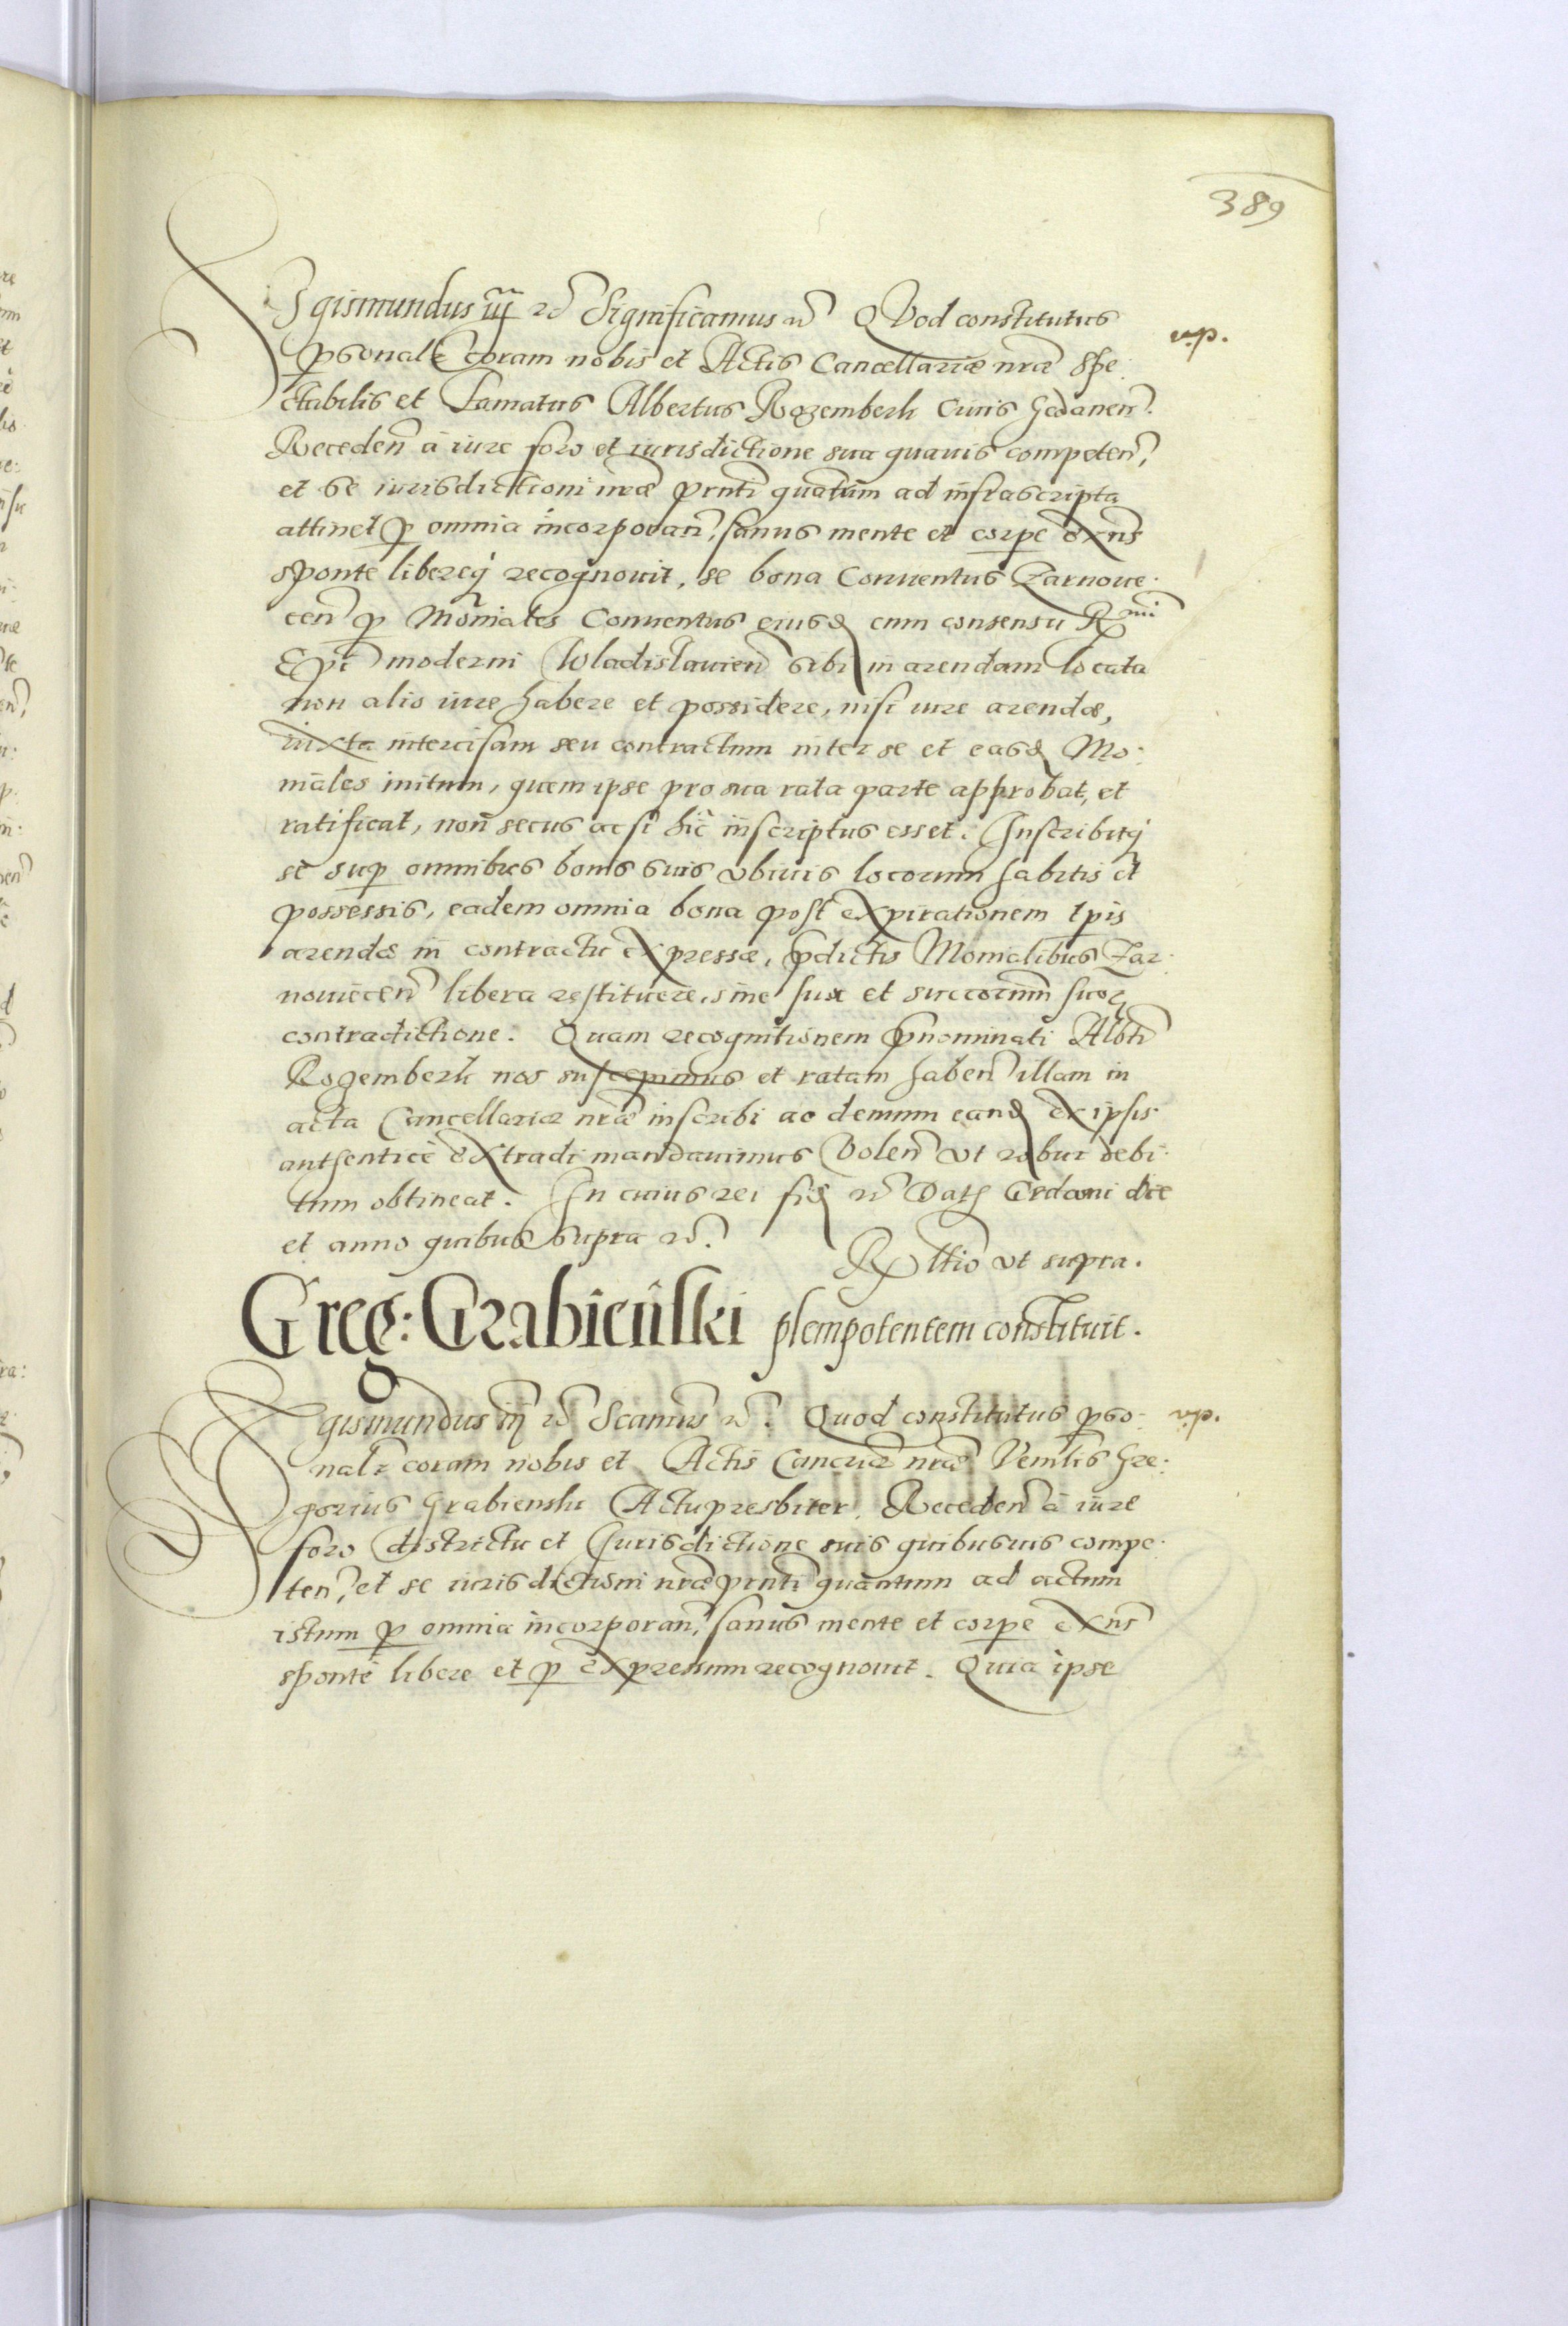 389
Sigismundus iij etc Significamus etc Quod constitutus
psonalr coram nobis et Actis Cancellariæ nræ Spe:
ctabilis et Famatus Albertus Rozemberk Civis Gedanen.
Receden à iure foro et iurisdictione sua quavis competen,
et se iurisdictioni nræ prnti quatum ad infrascripta
attinet p omnia incorporan, sanus mente et corpe exns
sponte libereq recognovit, se bona Conventus Zarnove:
cen p Moniales Conventus eiusd cum consensu Rmi
Epi moderni Wladislavien sibi in arendam locata
non alio iure habere et possidere, nisi iure arendæ,
iuxta intercisam seu contractum inter se et easd Mo:
niales initum, quem ipse pro sua rata parte approbat, et
ratificat, non secus ac si hic inscriptus esset. Inscribitq
se sup omnibus bonis suis ubivis locorum habitis et
possessis, eadem omnia bona post expirationem tpis
arendæ in contractu expressæ, pdictis Monialibus Zar:
noviecen libera restituere, sine sua et succorum suor
contradictione. Quam recognitionem pnominati Albti
Rozemberk nos suscepimus et ratam haben illam in
acta Cancellariæ nræ inscribi ac demum eand ex ipsis
authentice extradi mandavimus Volen ut robur debi:
tum obtineat. In cuius rei fid etc Dat Gedani die
et anno quibus supra etc.
Rltio ut supra.
Greg: Grabieński plenipotentem constituit.
Sigismundus iij etc Scamus etc. Quod constitutus pso:
nalr coram nobis et Actis Cancriæ nræ Venrlis Gre:
gorius Grabienski Actupresbiter, Receden à iure
foro districtu et Jurisdictione suis quibusvis compe:
ten, et se iurisdictioni nræ prnti quantum ad actum
istum p omnia incorporan, sanus mente et corpe exns
sponte libere et p expressum recognovit. Quia ipse
up.
up.